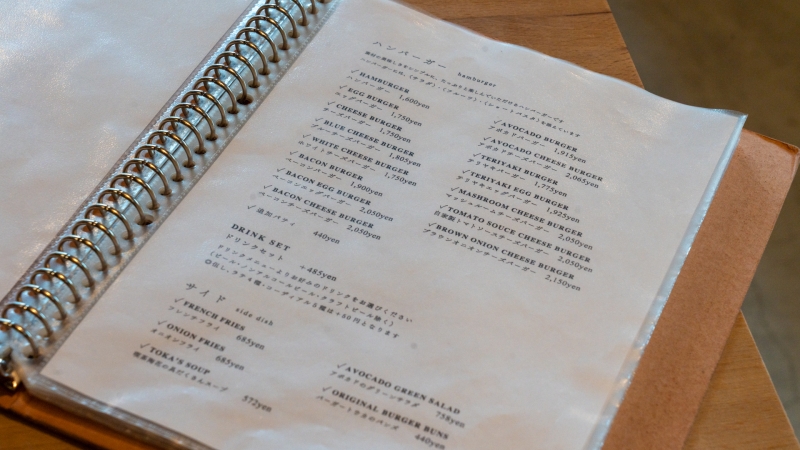 ハンバーガー hamburger
✓ HAMBURGER
ハンバーガー 1,600yen
✓ EGG BURGER
エッグバーガー 1,750yen
✓ CHEESE BURGER
チーズバーガー 1,750yen
✓ BLUE CHEESE BURGER
ブルーチーズバーガー 1,805yen
✓ WHITE CHEESE BURGER
ホワイトチーズバーガー 1,750yen
✓ BACON BURGER
ベーコンバーガー 1,900yen
✓ BACON EGG BURGER
ベーコンエッグバーガー 2,050yen
✓ BACON CHEESE BURGER
ベーコンチーズバーガー 2,050yen
✓ 追加パティ 440yen
✓ AVOCADO BURGER
アボカドバーガー 1,915yen
✓ AVOCADO CHEESE BURGER
アボカドチーズバーガー 2,065yen
✓ TERIYAKI BURGER
テリヤキバーガー 1,775yen
✓ TERIYAKI EGG BURGER
テリヤキエッグバーガー 1,925yen
✓ MASHROOM CHEESE BURGER
マッシュルームチーズバーガー 2,050yen
✓ TOMATO SOUCE CHEESE BURGER
自家製トマトソースチーズバーガー 2,050yen
✓ BROWN ONION CHEESE BURGER
ブラウンオニオンチーズバーガー 2,150yen
DRINK SET
ドリンクセット +485yen
ドリンクメニューよりお好みのドリンクをお選びください
(ビール・ノンアルコールビール・クラフトビール除く)
サイド side dish
✓ FRENCH FRIES
フレンチフライ 685yen
✓ ONION FRIES
オニオンフライ 685yen
✓ TOKA'S SOUP
572yen
✓ AVOCADO GREEN SALAD
アボカドのグリーンサラダ 758yen
✓ ORIGINAL BURGER BUNS
バーガートウカのバンズ 440yen